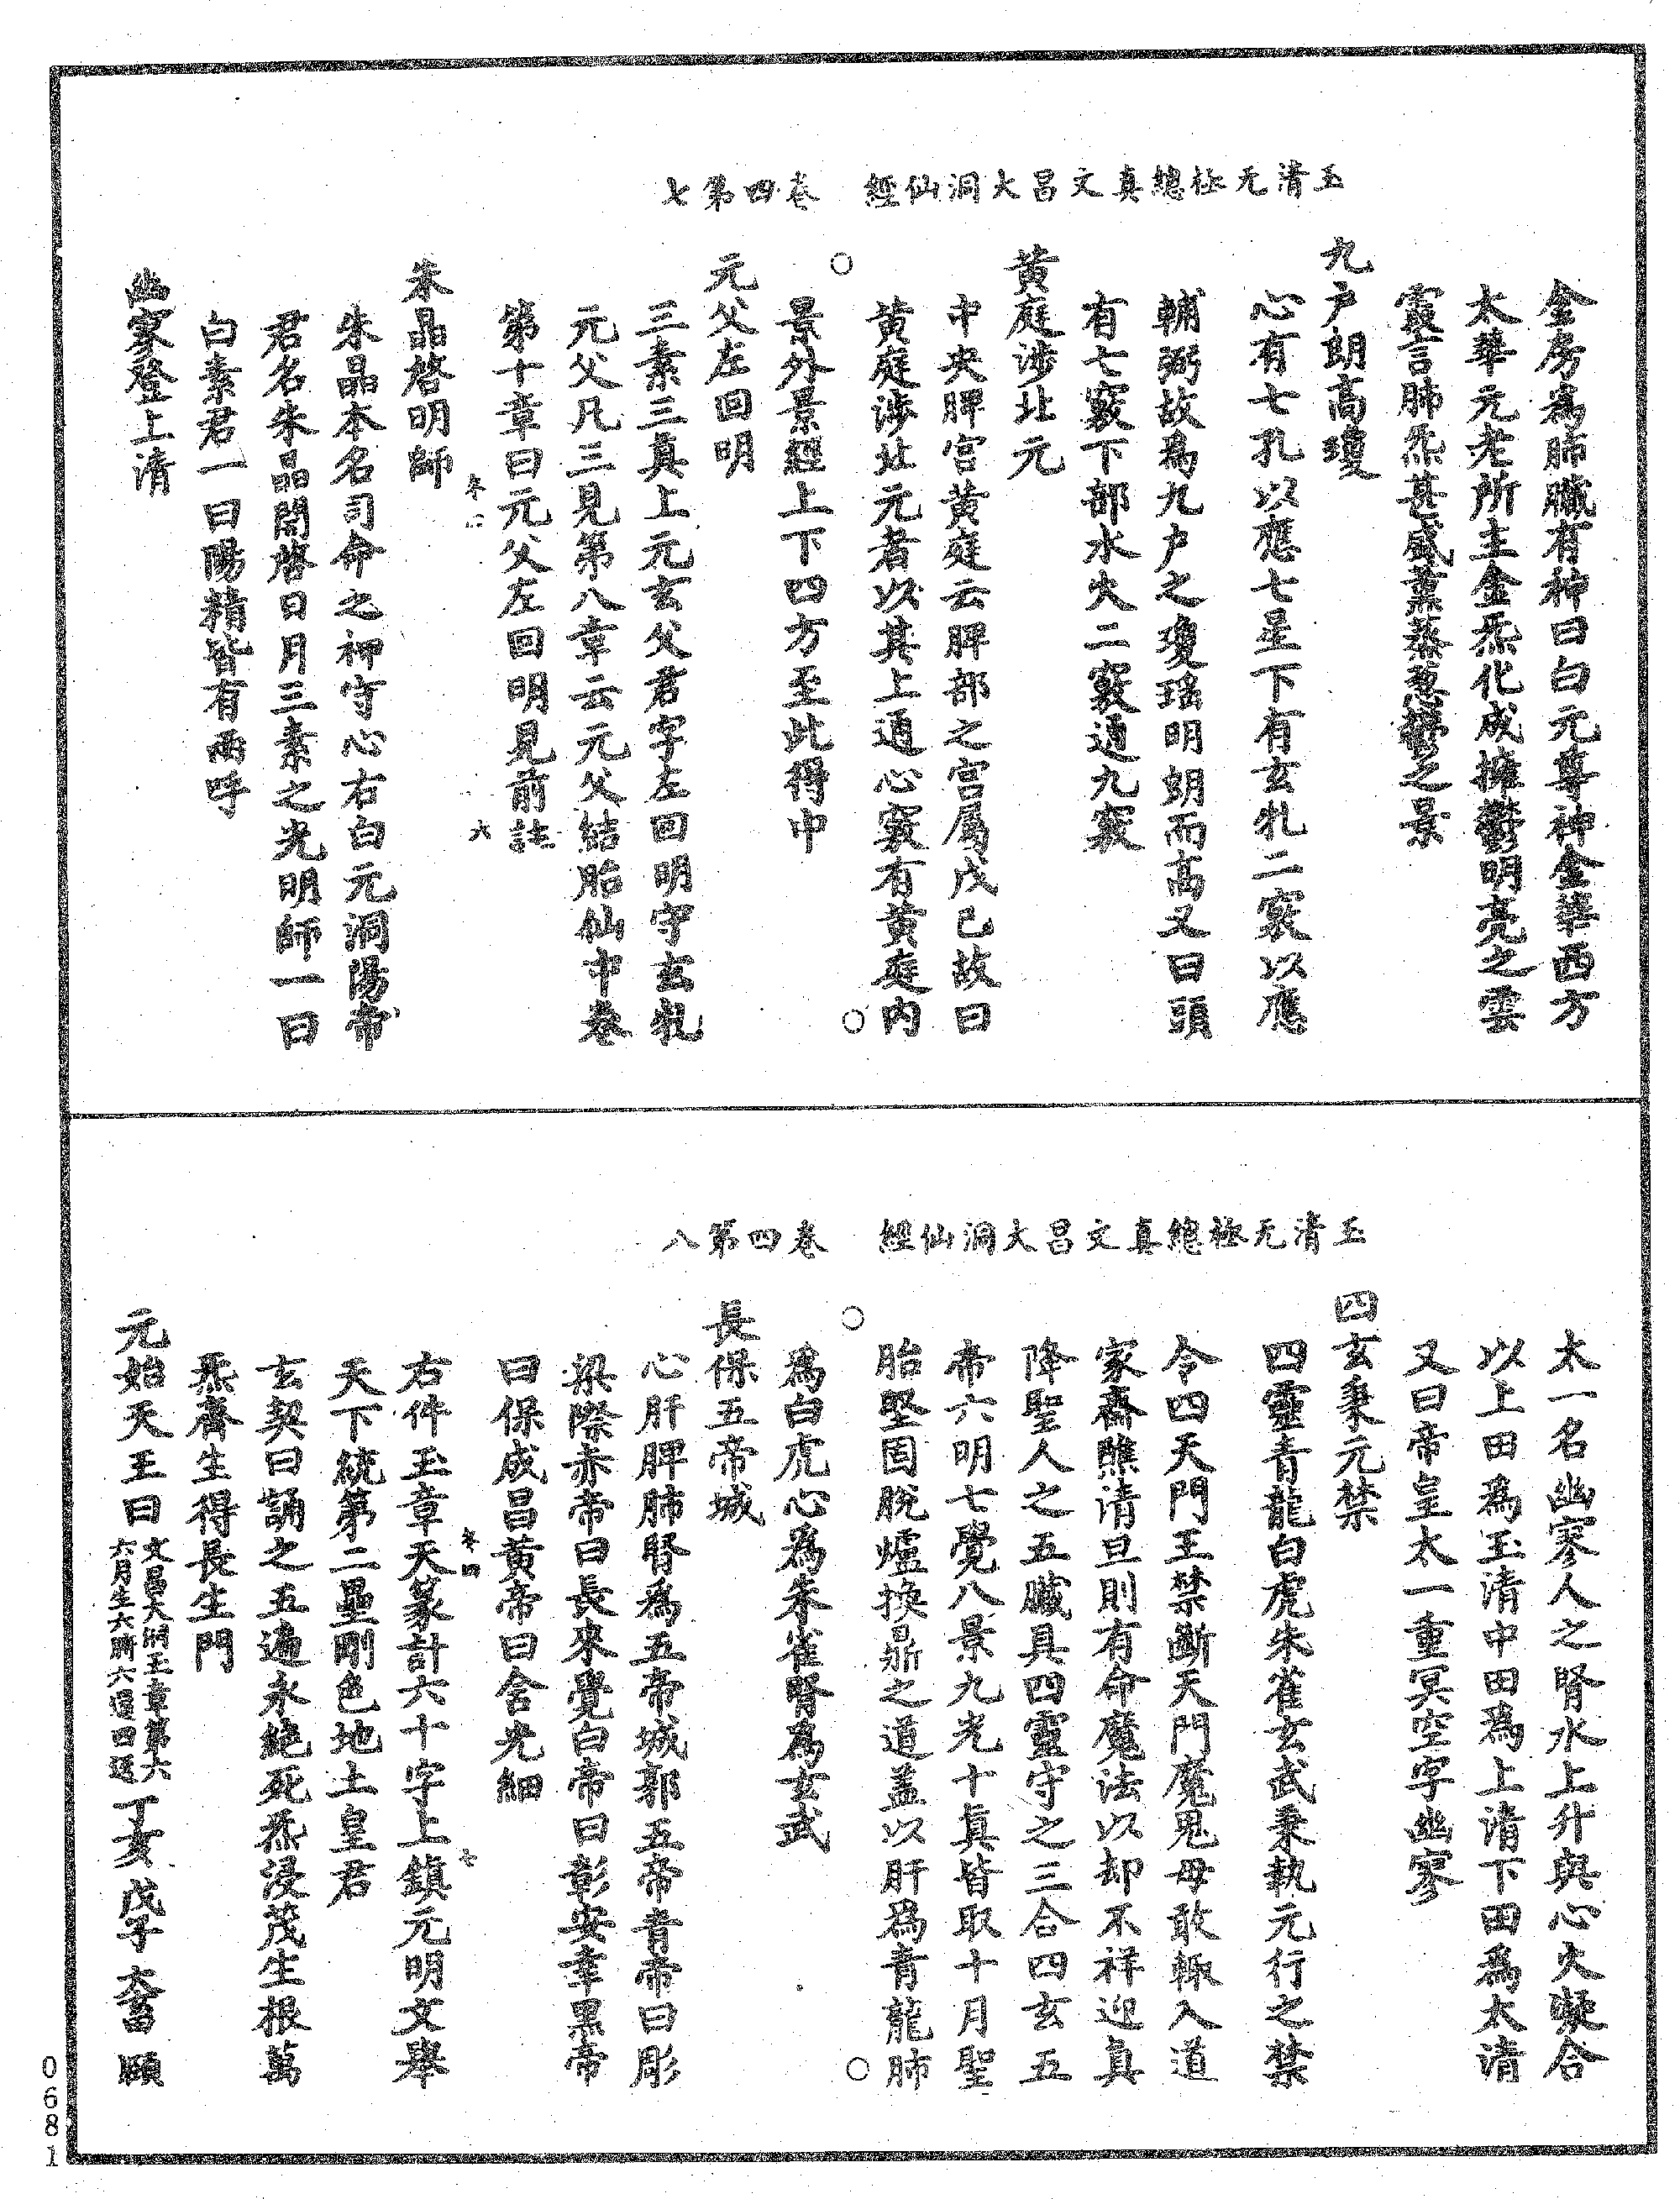 玉清无极總真文昌大洞仙經　卷四第七
金房為肺臟有神曰白元尊神金華西方
太華元老所主金炁化成擁鬱明亮之雲
靈言肺炁甚盛薰蒸葱鬱之景
九户朗高瓊
心有七孔以應七星下有玄札二竅以應
輔弼故為九户之瓊瑤明朗而高又曰頭
有七竅下部水火二竅通九竅
黄庭涉北元
中央脾宫黄庭云脾部之宫屬戊己故曰
黄庭涉北元者以其上通心竅有黄庭内
景外景經上下四方至此得中
元父左回明
三素三真上元玄父君字左回明守玄札
元父凡三見第八章云元父結胎仙中卷
第十章曰元父左回明見前註
朱晶啓明師
朱晶本名司命之神守心右白元洞陽帝
君名朱晶開啓日月三素之光明師一曰
白素君一曰陽精皆有兩呼
幽寥登上清
玉清无极總真文昌大洞仙經　卷四第八
太一名幽寥人之腎水上升與心火凝合
以上田為玉清中田為上清下田為太清
又曰帝皇太一重冥空字幽寥
四玄秉元禁
四靈青龍白虎朱雀玄武秉執元行之禁
令四天門王禁斷天門魔鬼毋敢輙入道
家齋醮清旦則有命魔法以却不祥迎真
降聖人之五臟具四靈守之三合四玄五
帝六明七覺八景九光十真皆取十月聖
胎堅固脫爐换鼎之道盖以肝為青龍肺
為白虎心為朱雀腎為玄武
長保五帝城
心肝脾肺腎為五帝城郭五帝青帝曰彫
梁際赤帝曰長來覺白帝曰彰安幸黑帝
曰保成昌黄帝曰含光細
右件玉章天篆計六十字上鎮元明文舉
天下統第二壘剛色地土皇君
玄契曰誦之五遍永絶死炁浸茂生根萬
炁齊生得長生門
元始天王曰文昌大洞玉章第六六月生六時六過回送丁亥 戊子 大畜 頤
0681